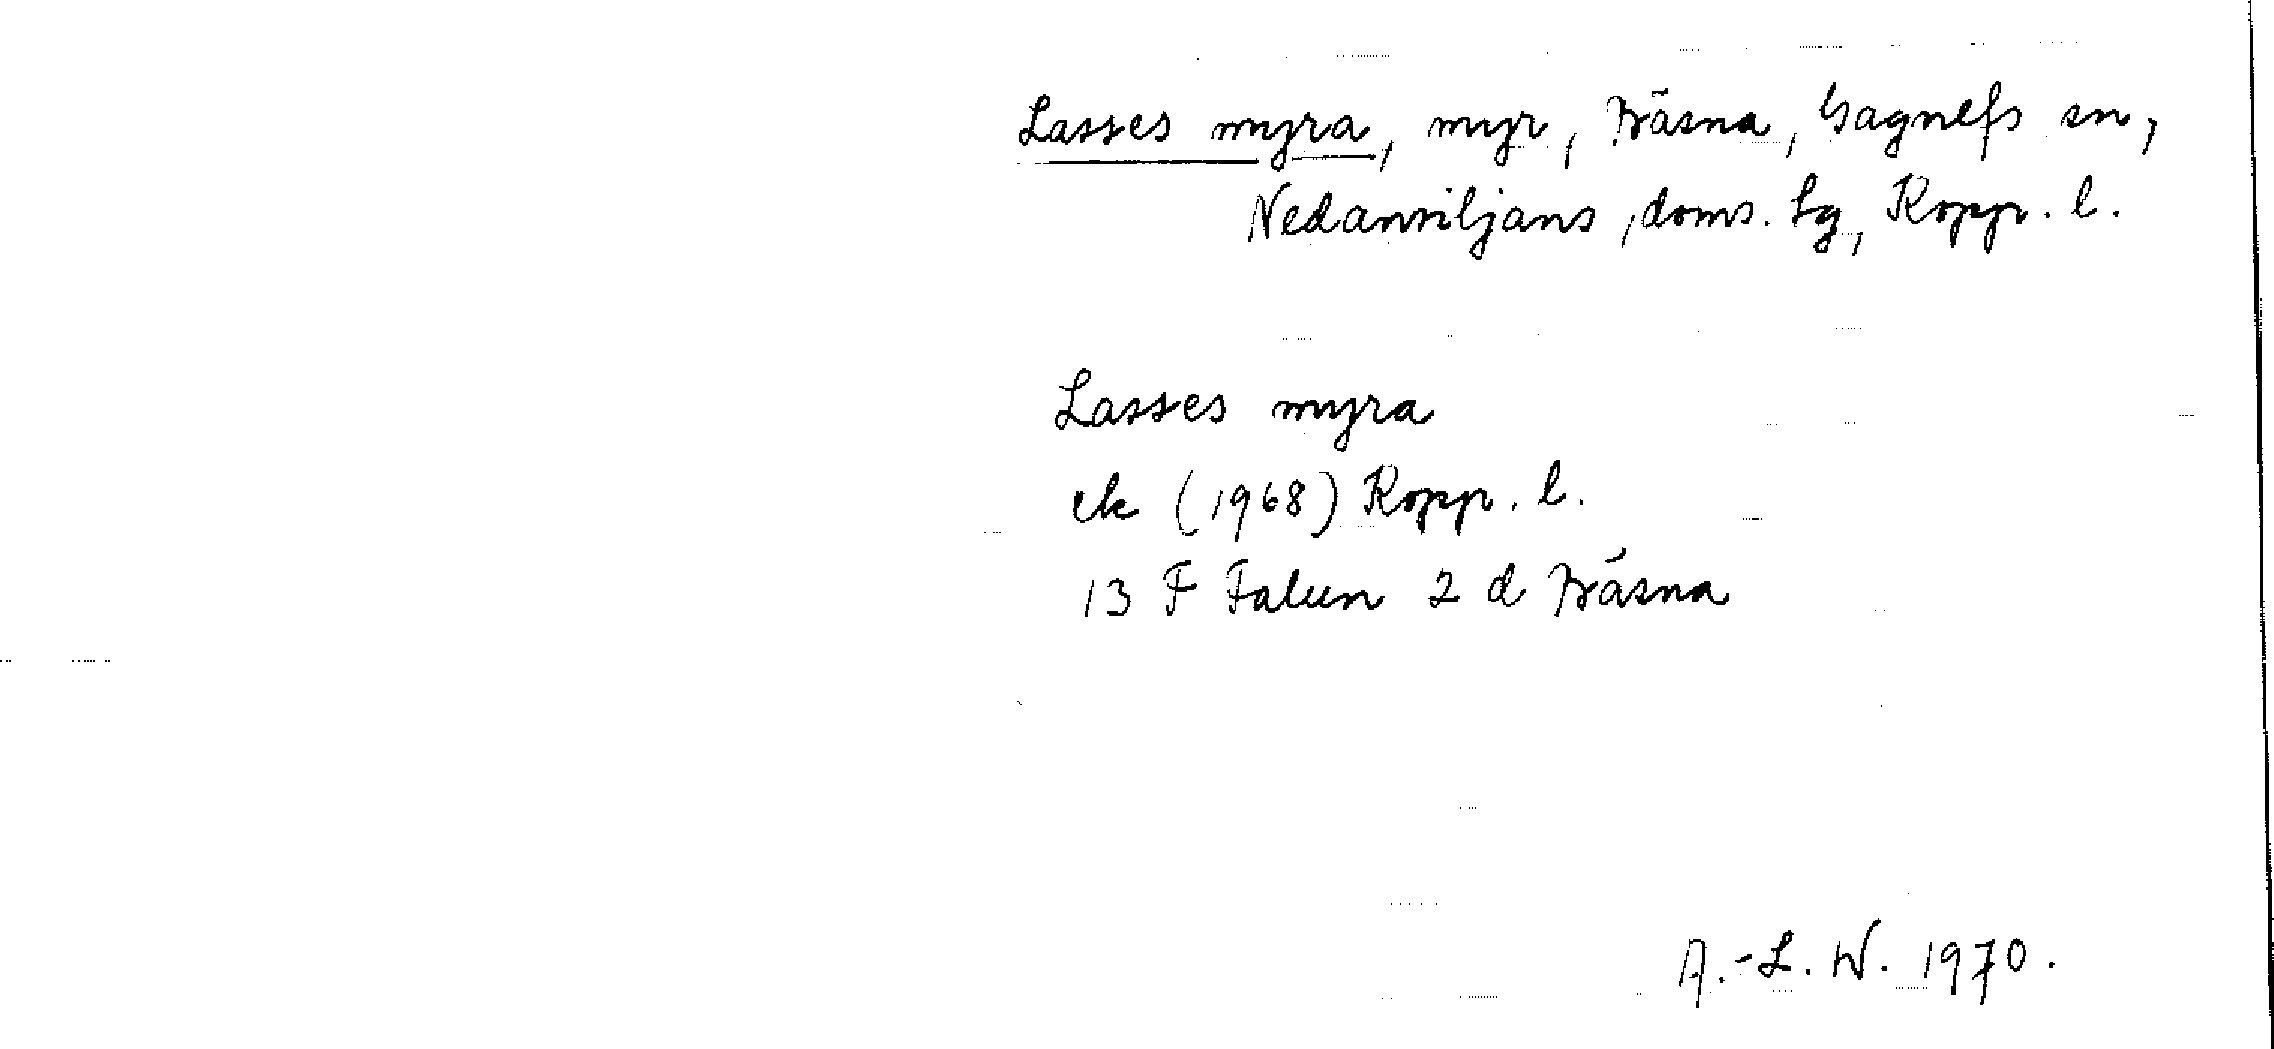 Lasses myra, myr, Bäsna, Gagnefs sn,
Nedansiljans doms. tg, Kopp. l.
Lasses myra
ek (1968) Kopp. l.
13 F Falun 2 d Bäsna
A.-L. W. 1970.